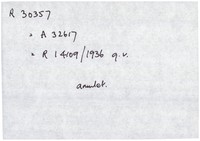 R 30357
" A 32617
" R 14109/1936 q.v.
amulet.